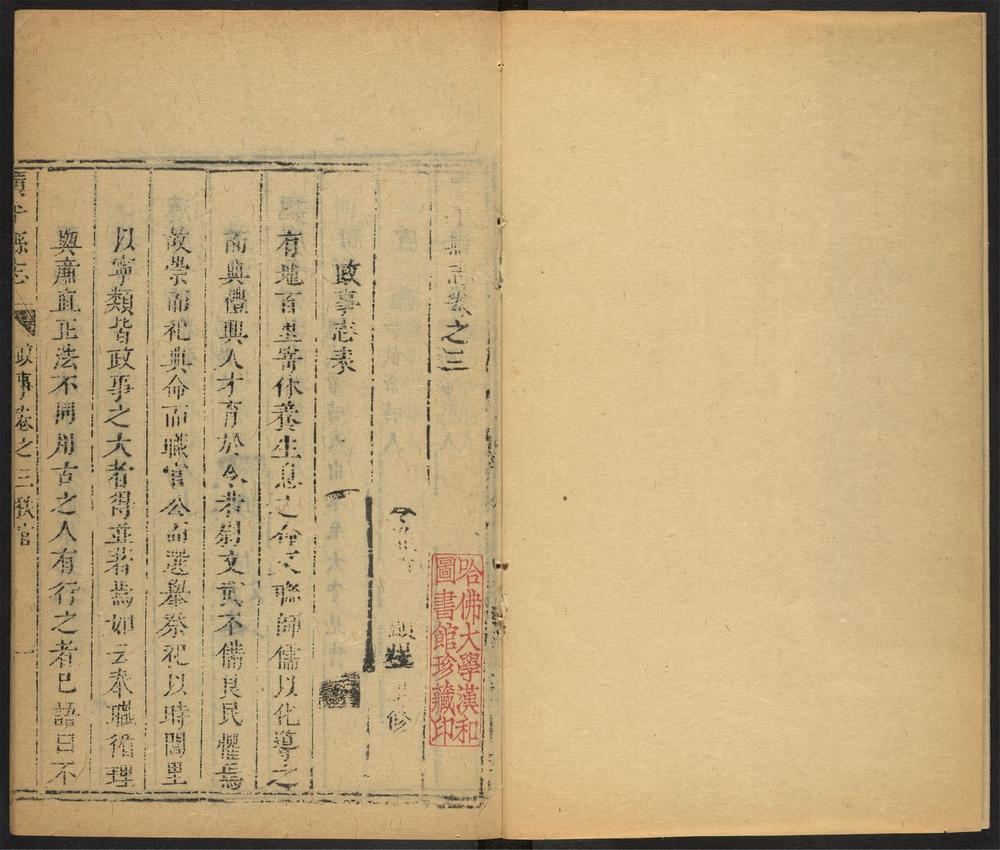 縣志卷之三
重修
政事志表
有地百里審休養生息之命又聯師儒以化導之
而典禮興人才育於今若制文武不備良民懼焉
故崇而祀典命而職官公而選舉祭祀以時閭里
以寧類皆政事之大者得並著焉如云奉職循理
與廉直正法不同用古之人有行之者已語曰不
縣志
政事卷之三秩官
一
哈佛大學漢和
圖書館珍藏印